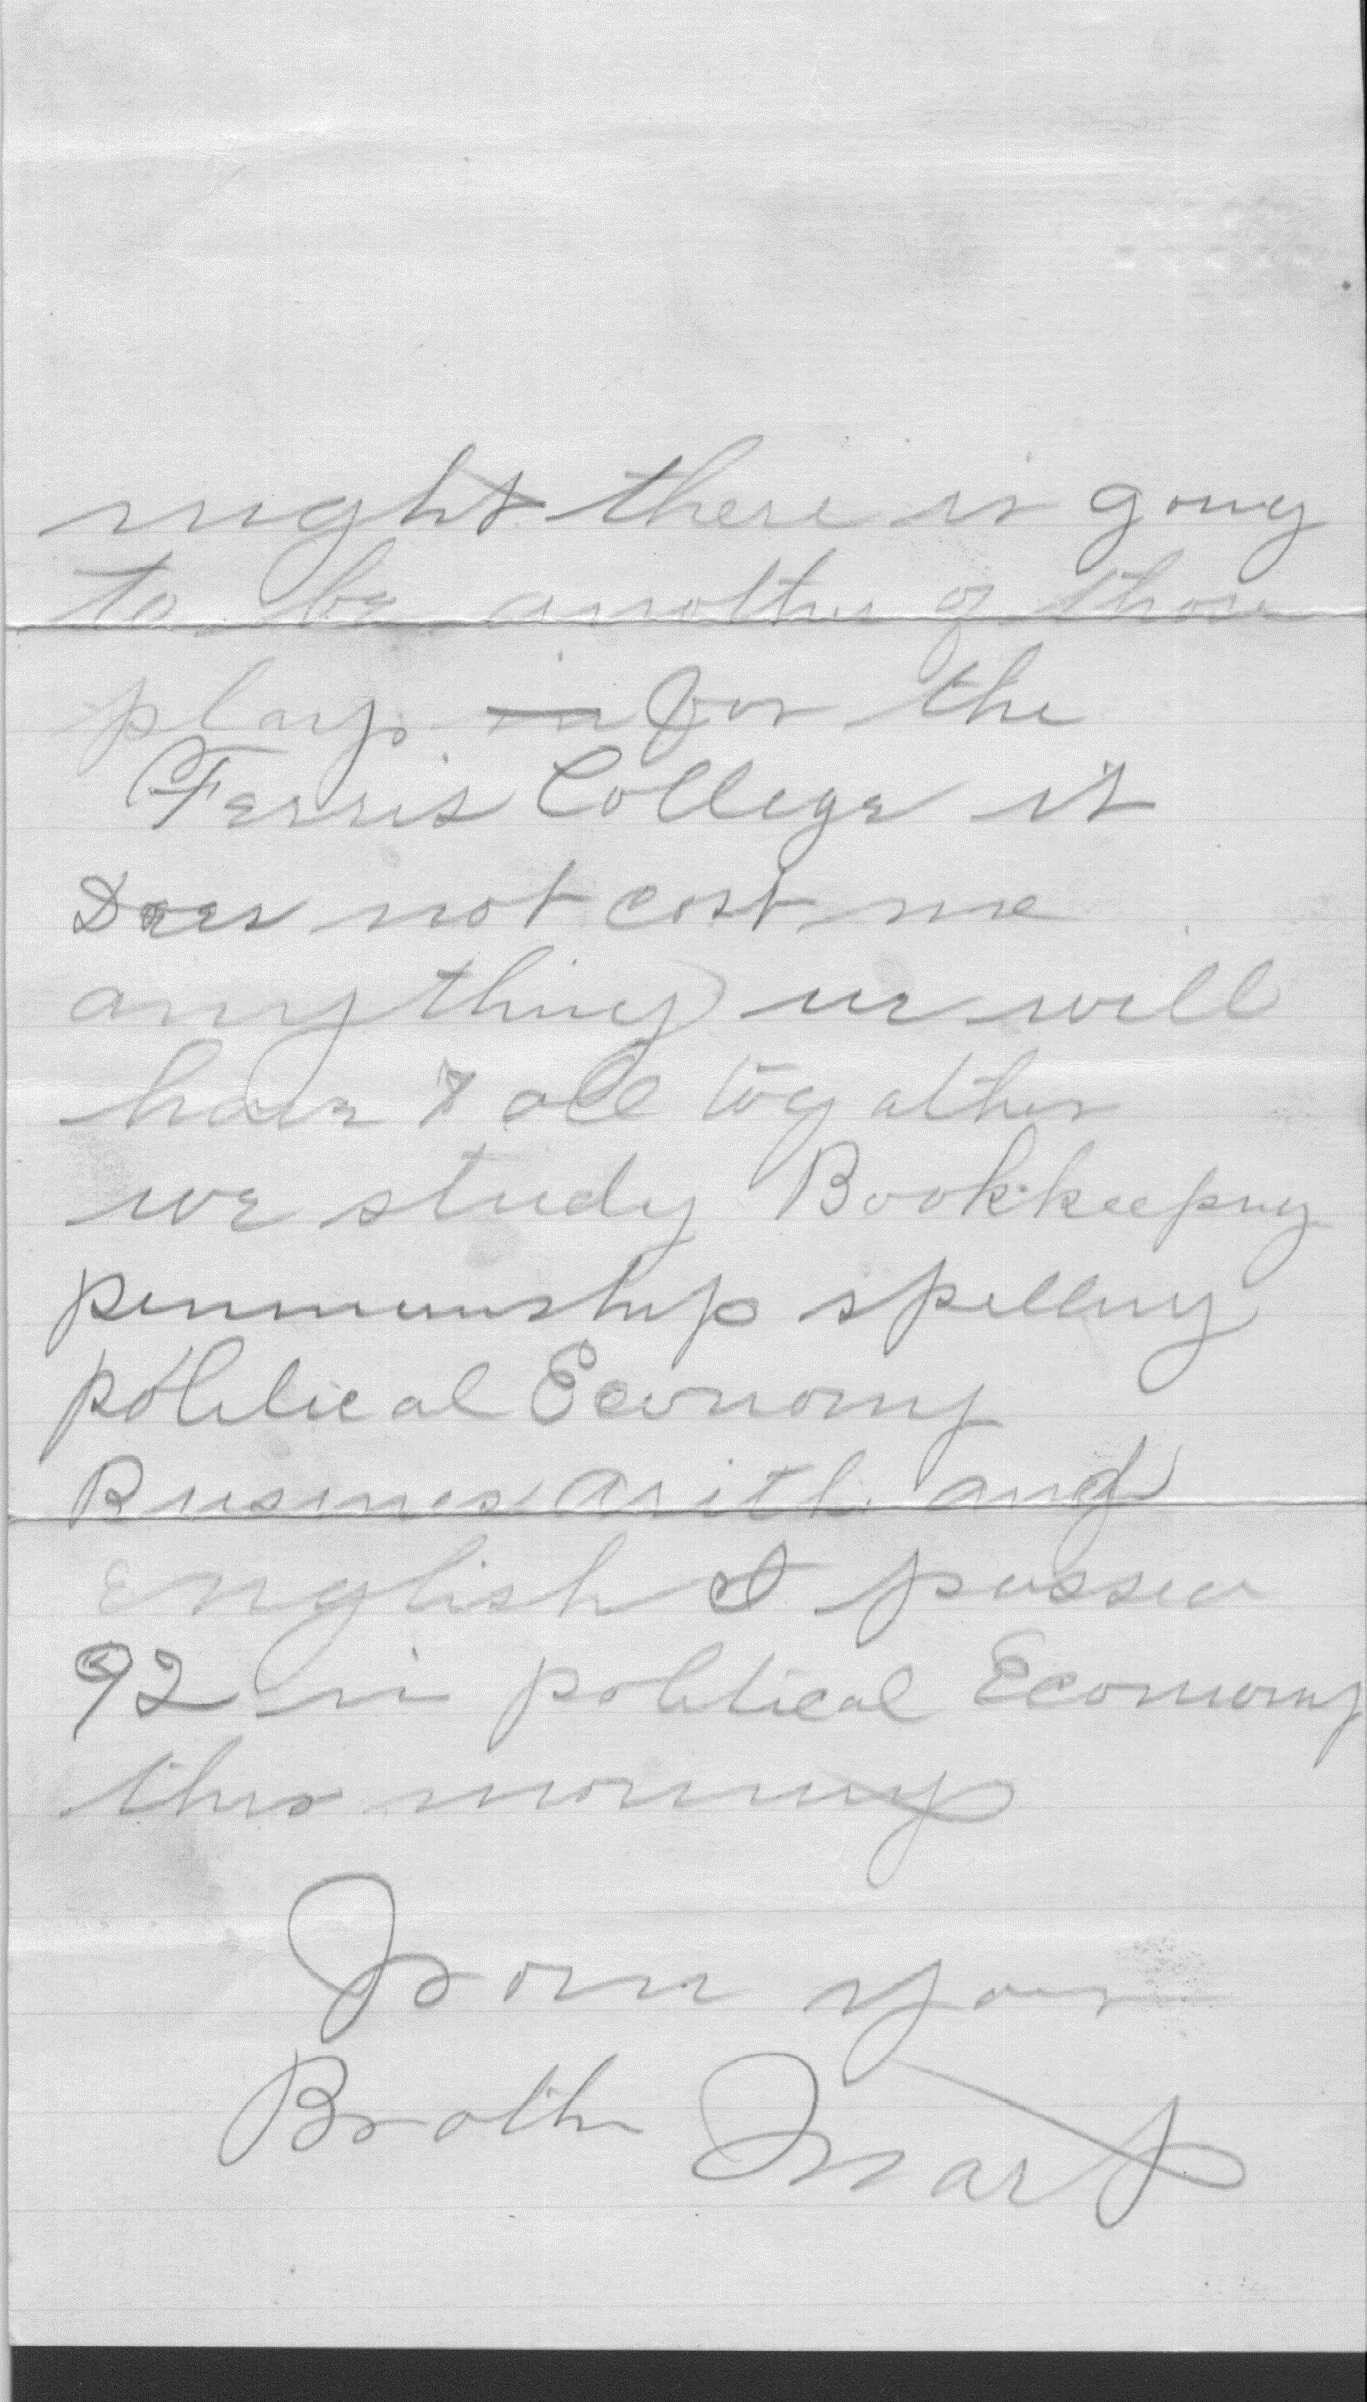 night there is going
to be another of those
plays in for the
Ferris College it
Does not cost me
anything we will
have 7 all togather
we study Bookkeeping
penmanship spelling
political Economy
Business arith and
english I passed
92 in political Economy
this morning
From your
Brother Mart